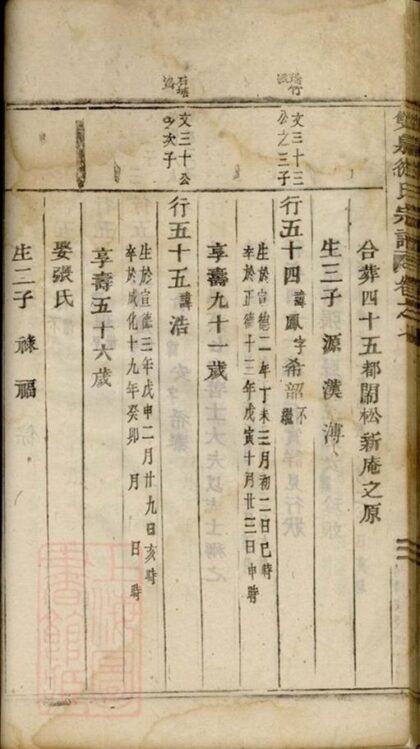 氏宗譜
合葬四十五都鬧松新庵之原
生三子 源 漢 溥
文三十三
公之三子
行五十四 諱鳳字希韶
生於宣德二年丁未三月初二日巳時
卒於正德十三年戊寅十月廿二日申時
享壽九十一歲
文三十公
次子
行五十五 諱浩
生於宣德三年戊申二月廿九日亥時
卒於成化十九年癸卯 月 日 時
享壽五十六歲
娶張氏
生二子 祿 福